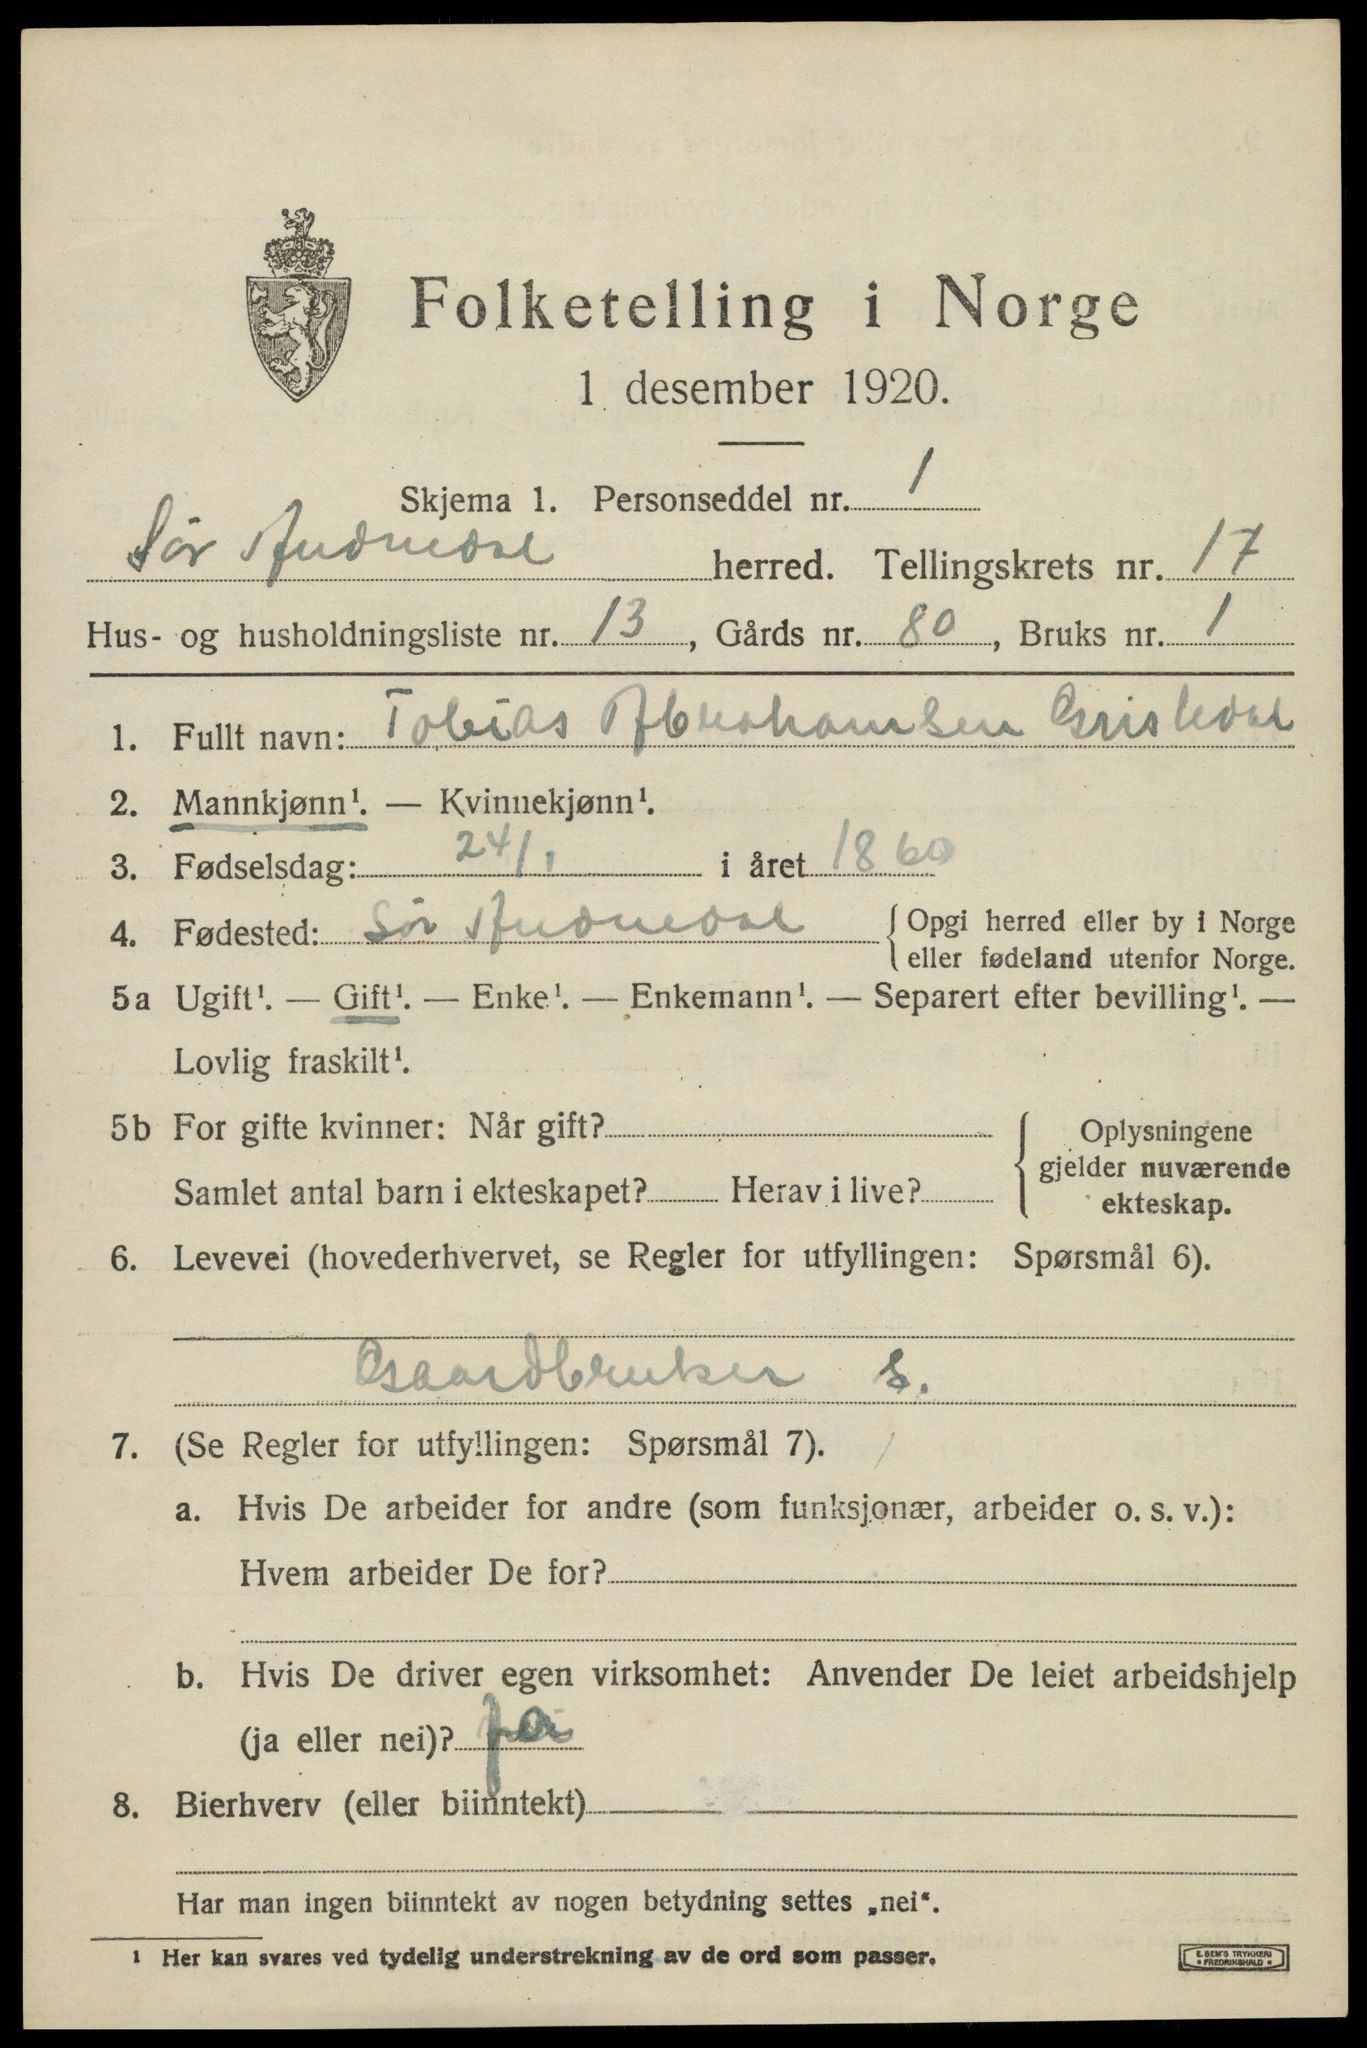 Folketelling i Norge
1 desember 1920.
Skjema 1. Personseddel nr. 1
Sør Audnedal herred. Tellingskrets nr. 17
Hus- og husholdningsliste nr. 13, Gårds nr. 80, Bruks nr. 1
1. Fullt navn: Tobias Abrahamsen Grisledal
2. Mannkjønn¹. — Kvinnekjønn¹.
3. Fødselsdag: 24/1 i året 1860
4. Fødested: Sør Audnedal { Opgi herred eller by i Norge
eller fødeland utenfor Norge.
5a Ugift¹. — Gift¹. — Enke¹. — Enkemann¹. — Separert efter bevilling¹. —
Lovlig fraskilt¹.
5b For gifte kvinner: Når gift?
Samlet antal barn i ekteskapet? Herav i live?
{ Oplysningene
gjelder nuværende
ekteskap.
6. Levevei (hovederhvervet, se Regler for utfyllingen: Spørsmål 6).
Gaardbruker S.
7. (Se Regler for utfyllingen: Spørsmål 7).
a. Hvis De arbeider for andre (som funksjonær, arbeider o. s. v.):
Hvem arbeider De for?
b. Hvis De driver egen virksomhet: Anvender De leiet arbeidshjelp
(ja eller nei)? ja
8. Bierhverv (eller biinntekt)
Har man ingen biinntekt av nogen betydning settes „nei“.
¹ Her kan svares ved tydelig understrekning av de ord som passer.
E. SEM'S TRYKKERI
* FREDRIKSHALD *